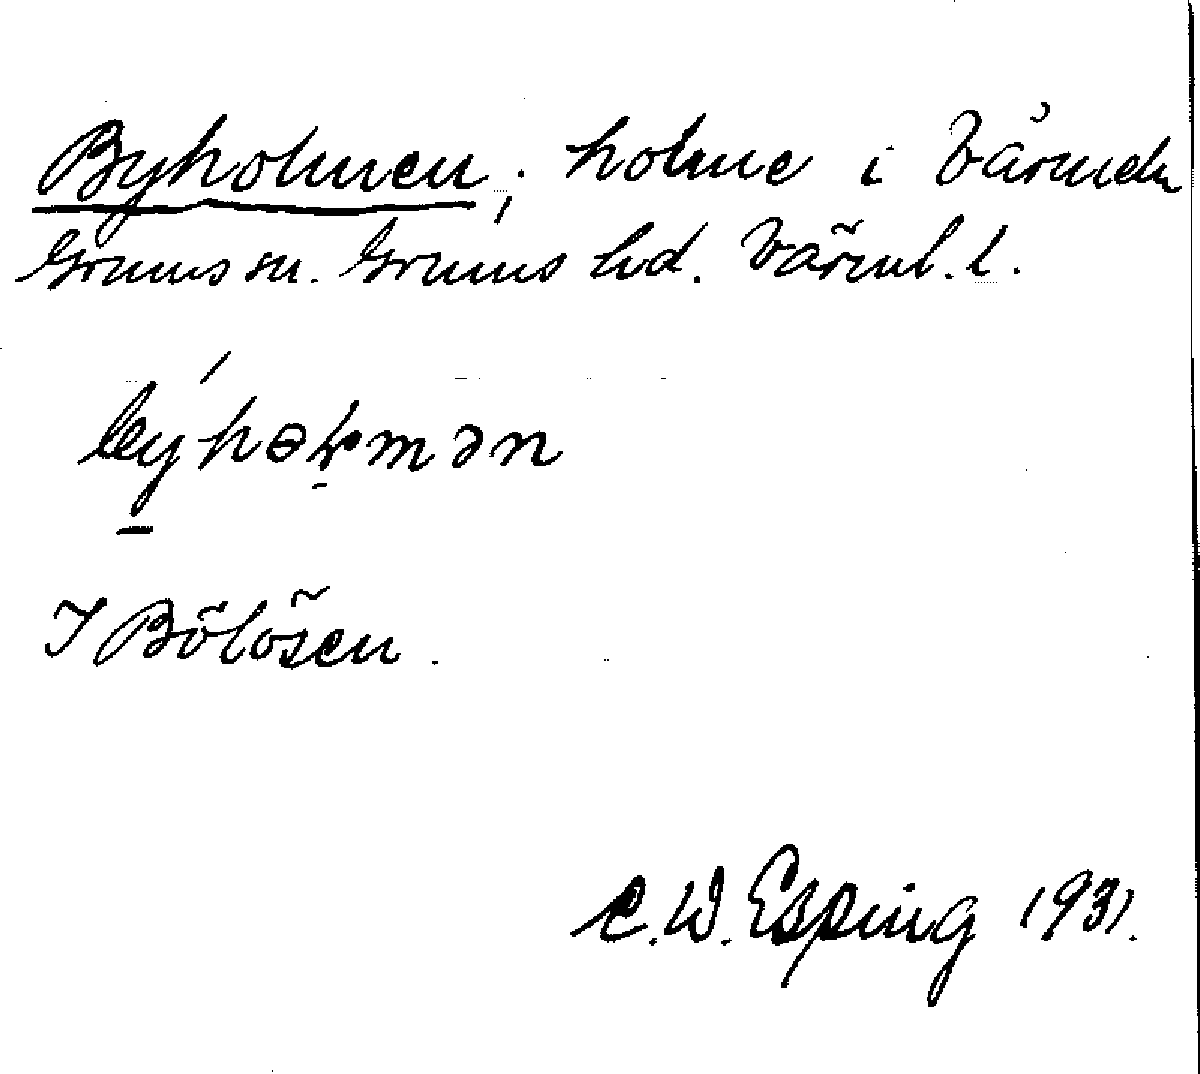 Byholmen; holme i Vänern
Grums sn. Grums hd. Värml. l.
býhɵɽmən
I Bölösen.
C. W. Esping 1931.